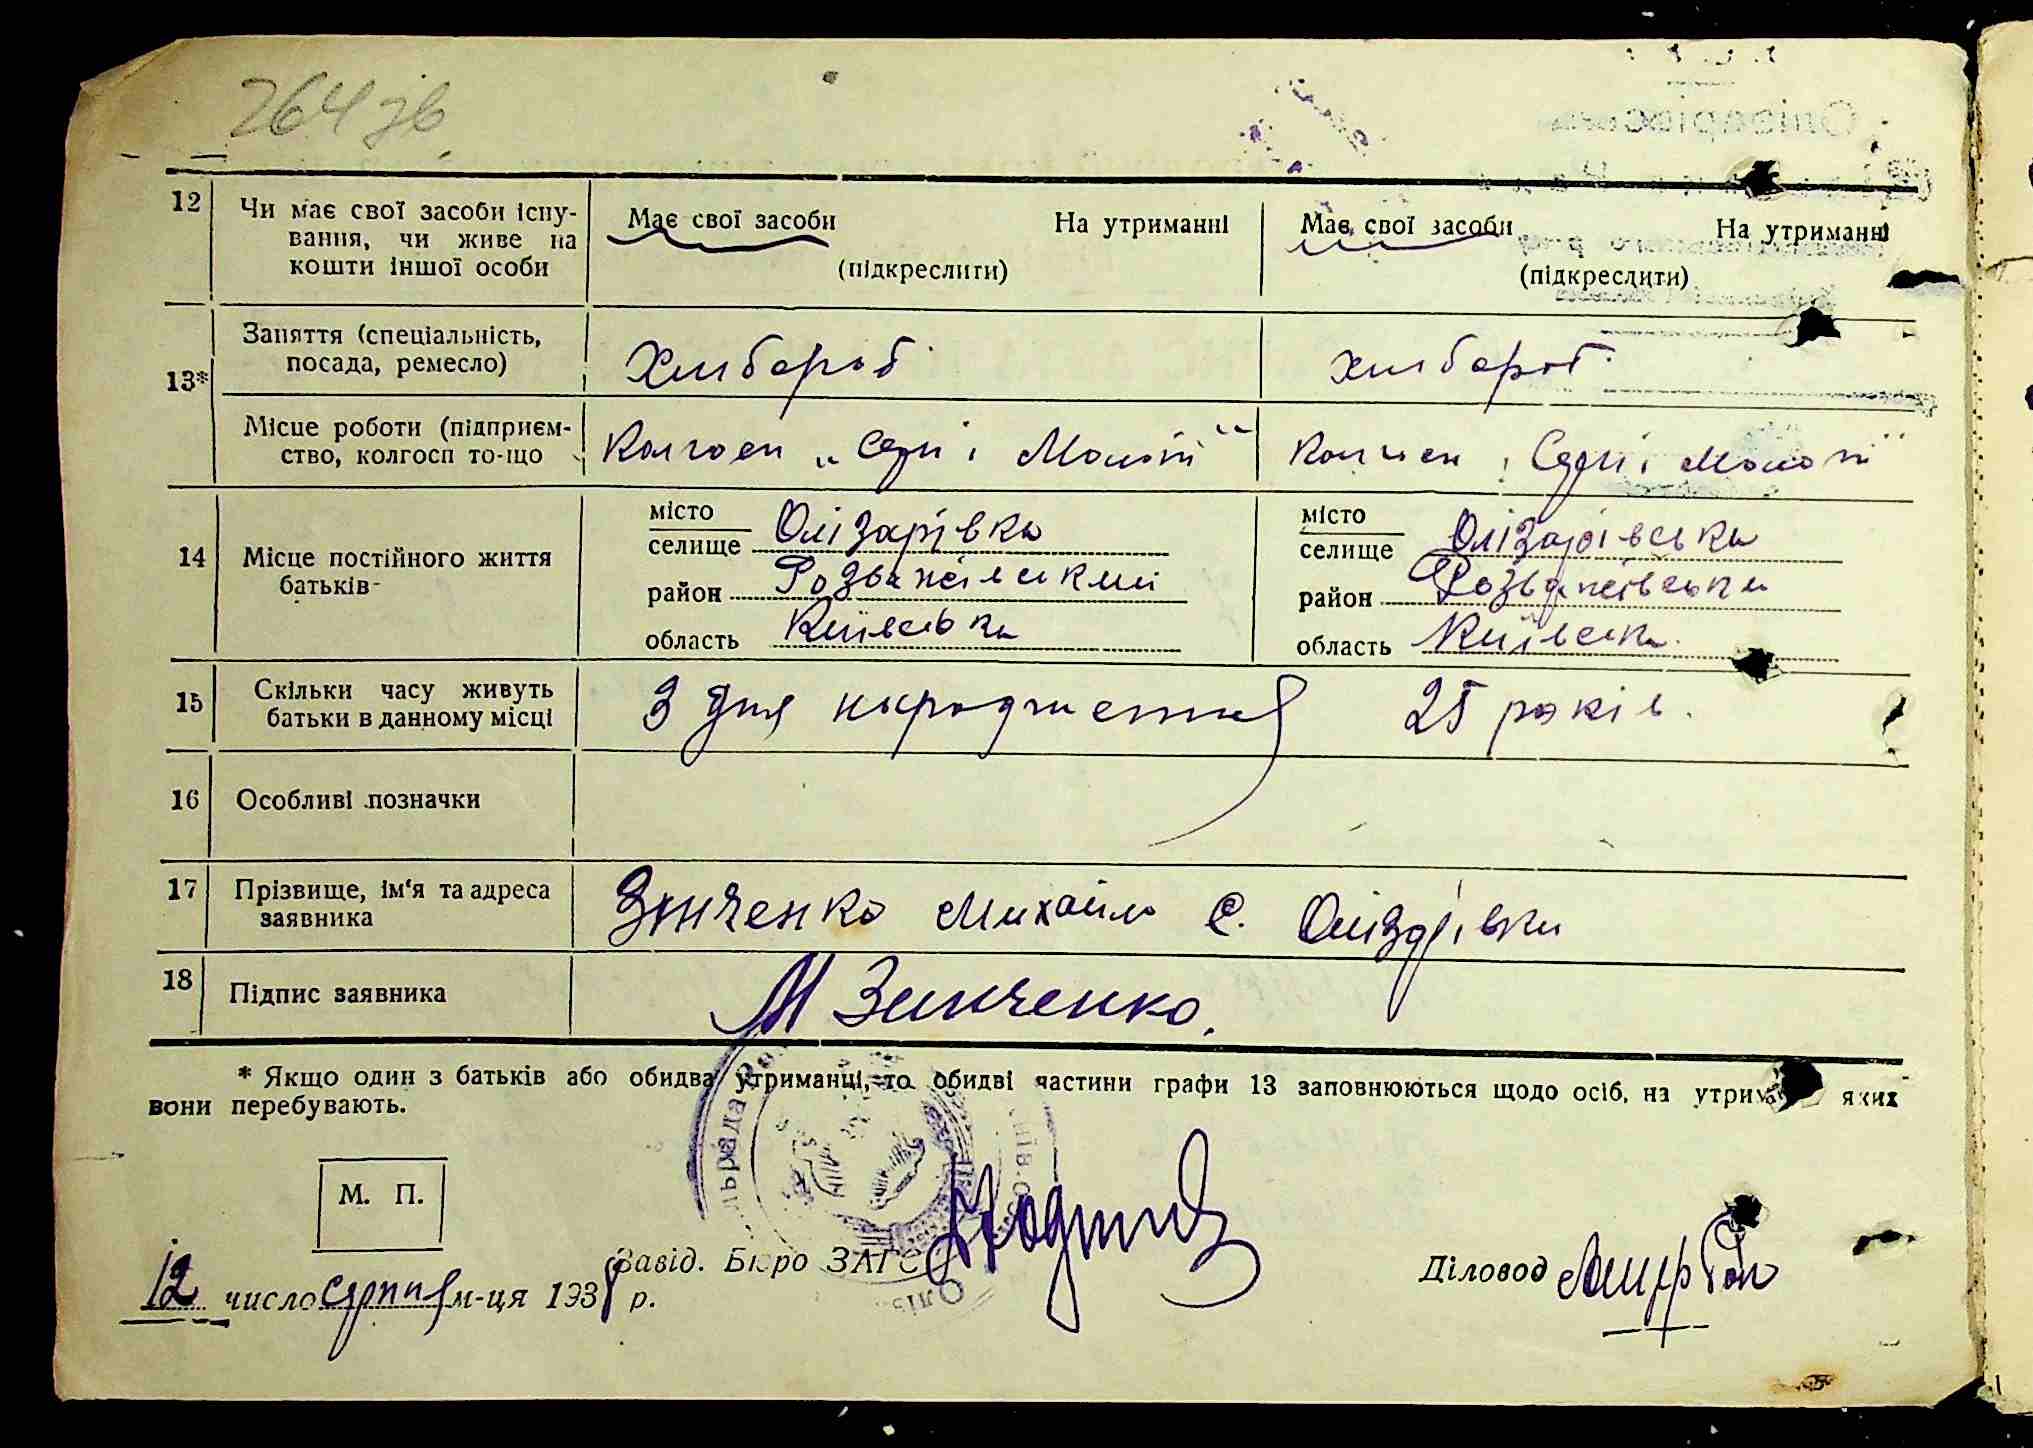 264 зв
12 Чи має свої засоби існу-
вання, чи живе на
кошти іншої особи
Має свої засоби На утриманні
(підкреслити)
Має свої засоби На утриманні
(підкреслити)
13*
Заняття (спеціальність,
посада, ремесло)
Хлибороб
хлибороб
Місце роботи (підприєм-
ство, колгосп то-що
Колгосп „Серп і Молот"
Колгосп „Серп і Молот"
14 Місце постійного життя
батьків-
місто
селище Олізарівка
район Розважівський
область Київська
місто
селище Олізарівська
район Розважівська
область Київська.
15 Скільки часу живуть
батьки в данному місці
З дня народження 25 років.
16 Особливі позначки
17 Прізвище, ім'я та адреса
заявника
Зінченко Михайло С. Олізарівки
18 Підпис заявника
М Зинченко.
* Якщо один з батьків або обидва утриманці, то обидві частини графи 13 заповнюються щодо осіб, на яких
вони перебувають.
М. П.
Завід. Бюро ЗАГС
Діловод
12 число серпня м-ця 1938 р.